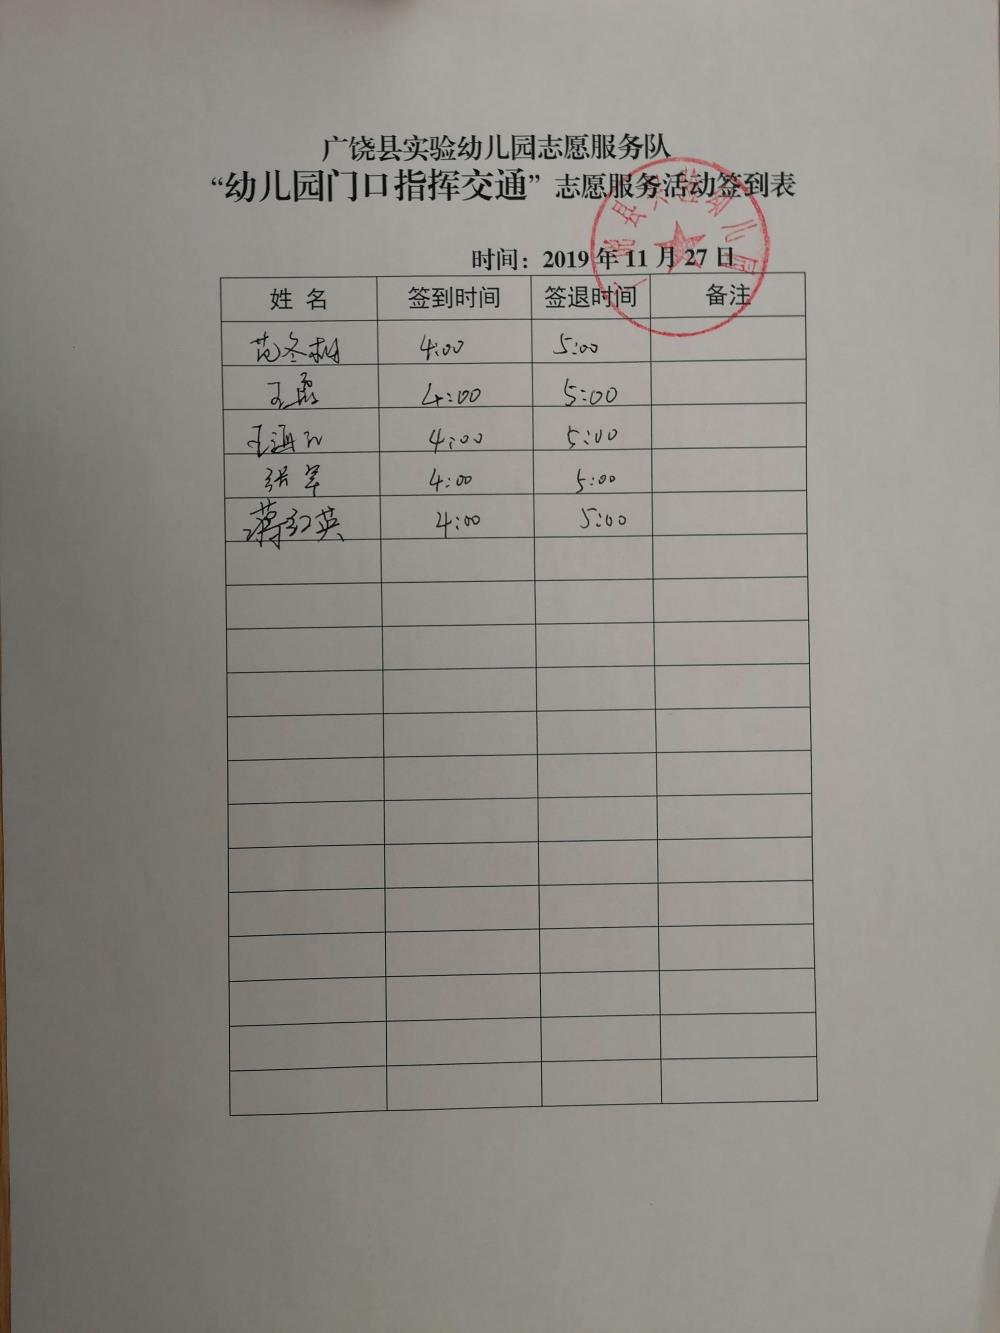 广饶县实验幼儿园志愿服务队
“幼儿园门口指挥交通” 志愿服务活动签到表
广饶县实验幼儿园
时间：2019 年 11 月 27 日
姓 名 签到时间 签退时间 备注
范冬梅 4:00 5:00
王磊 4:00 5:00
王海 4:00 5:00
张军 4:00 5:00
蒋红英 4:00 5:00